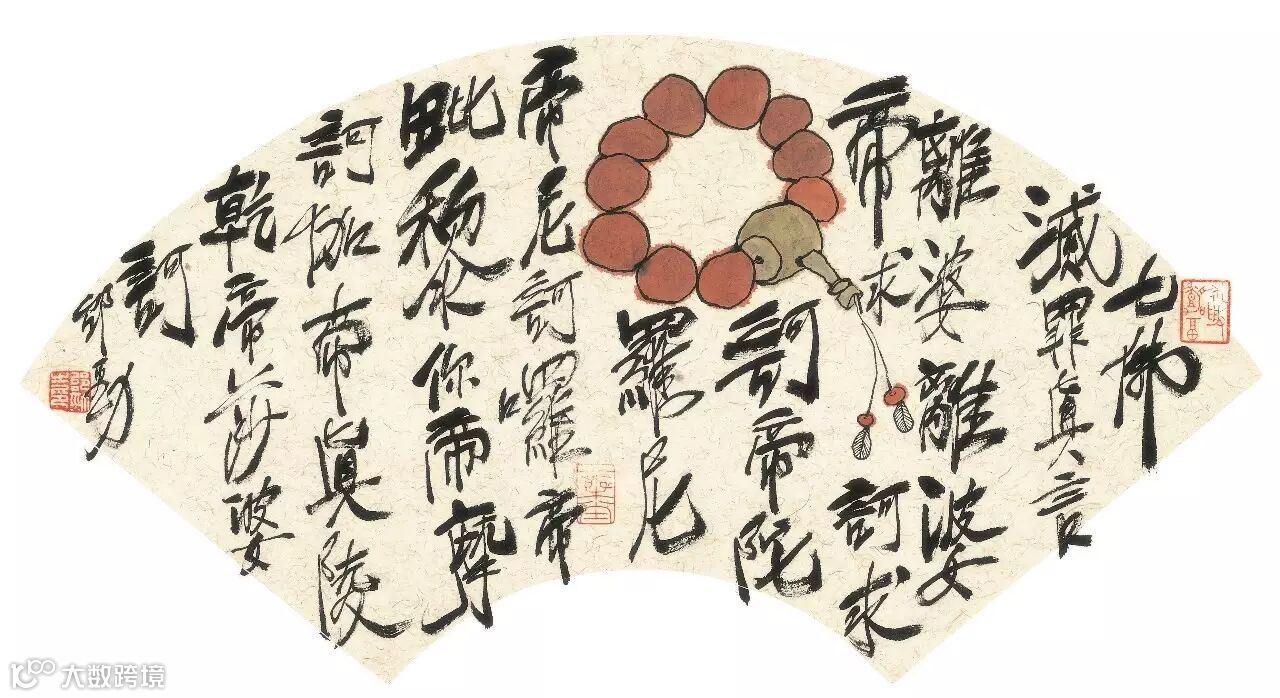 七佛
滅罪眞言
離婆離婆
帝求訶求
訶帝陀
羅尼
帝尼訶囉帝
毗黎你摩
訶伽帝眞陵
乾帝莎婆
訶
大数跨境